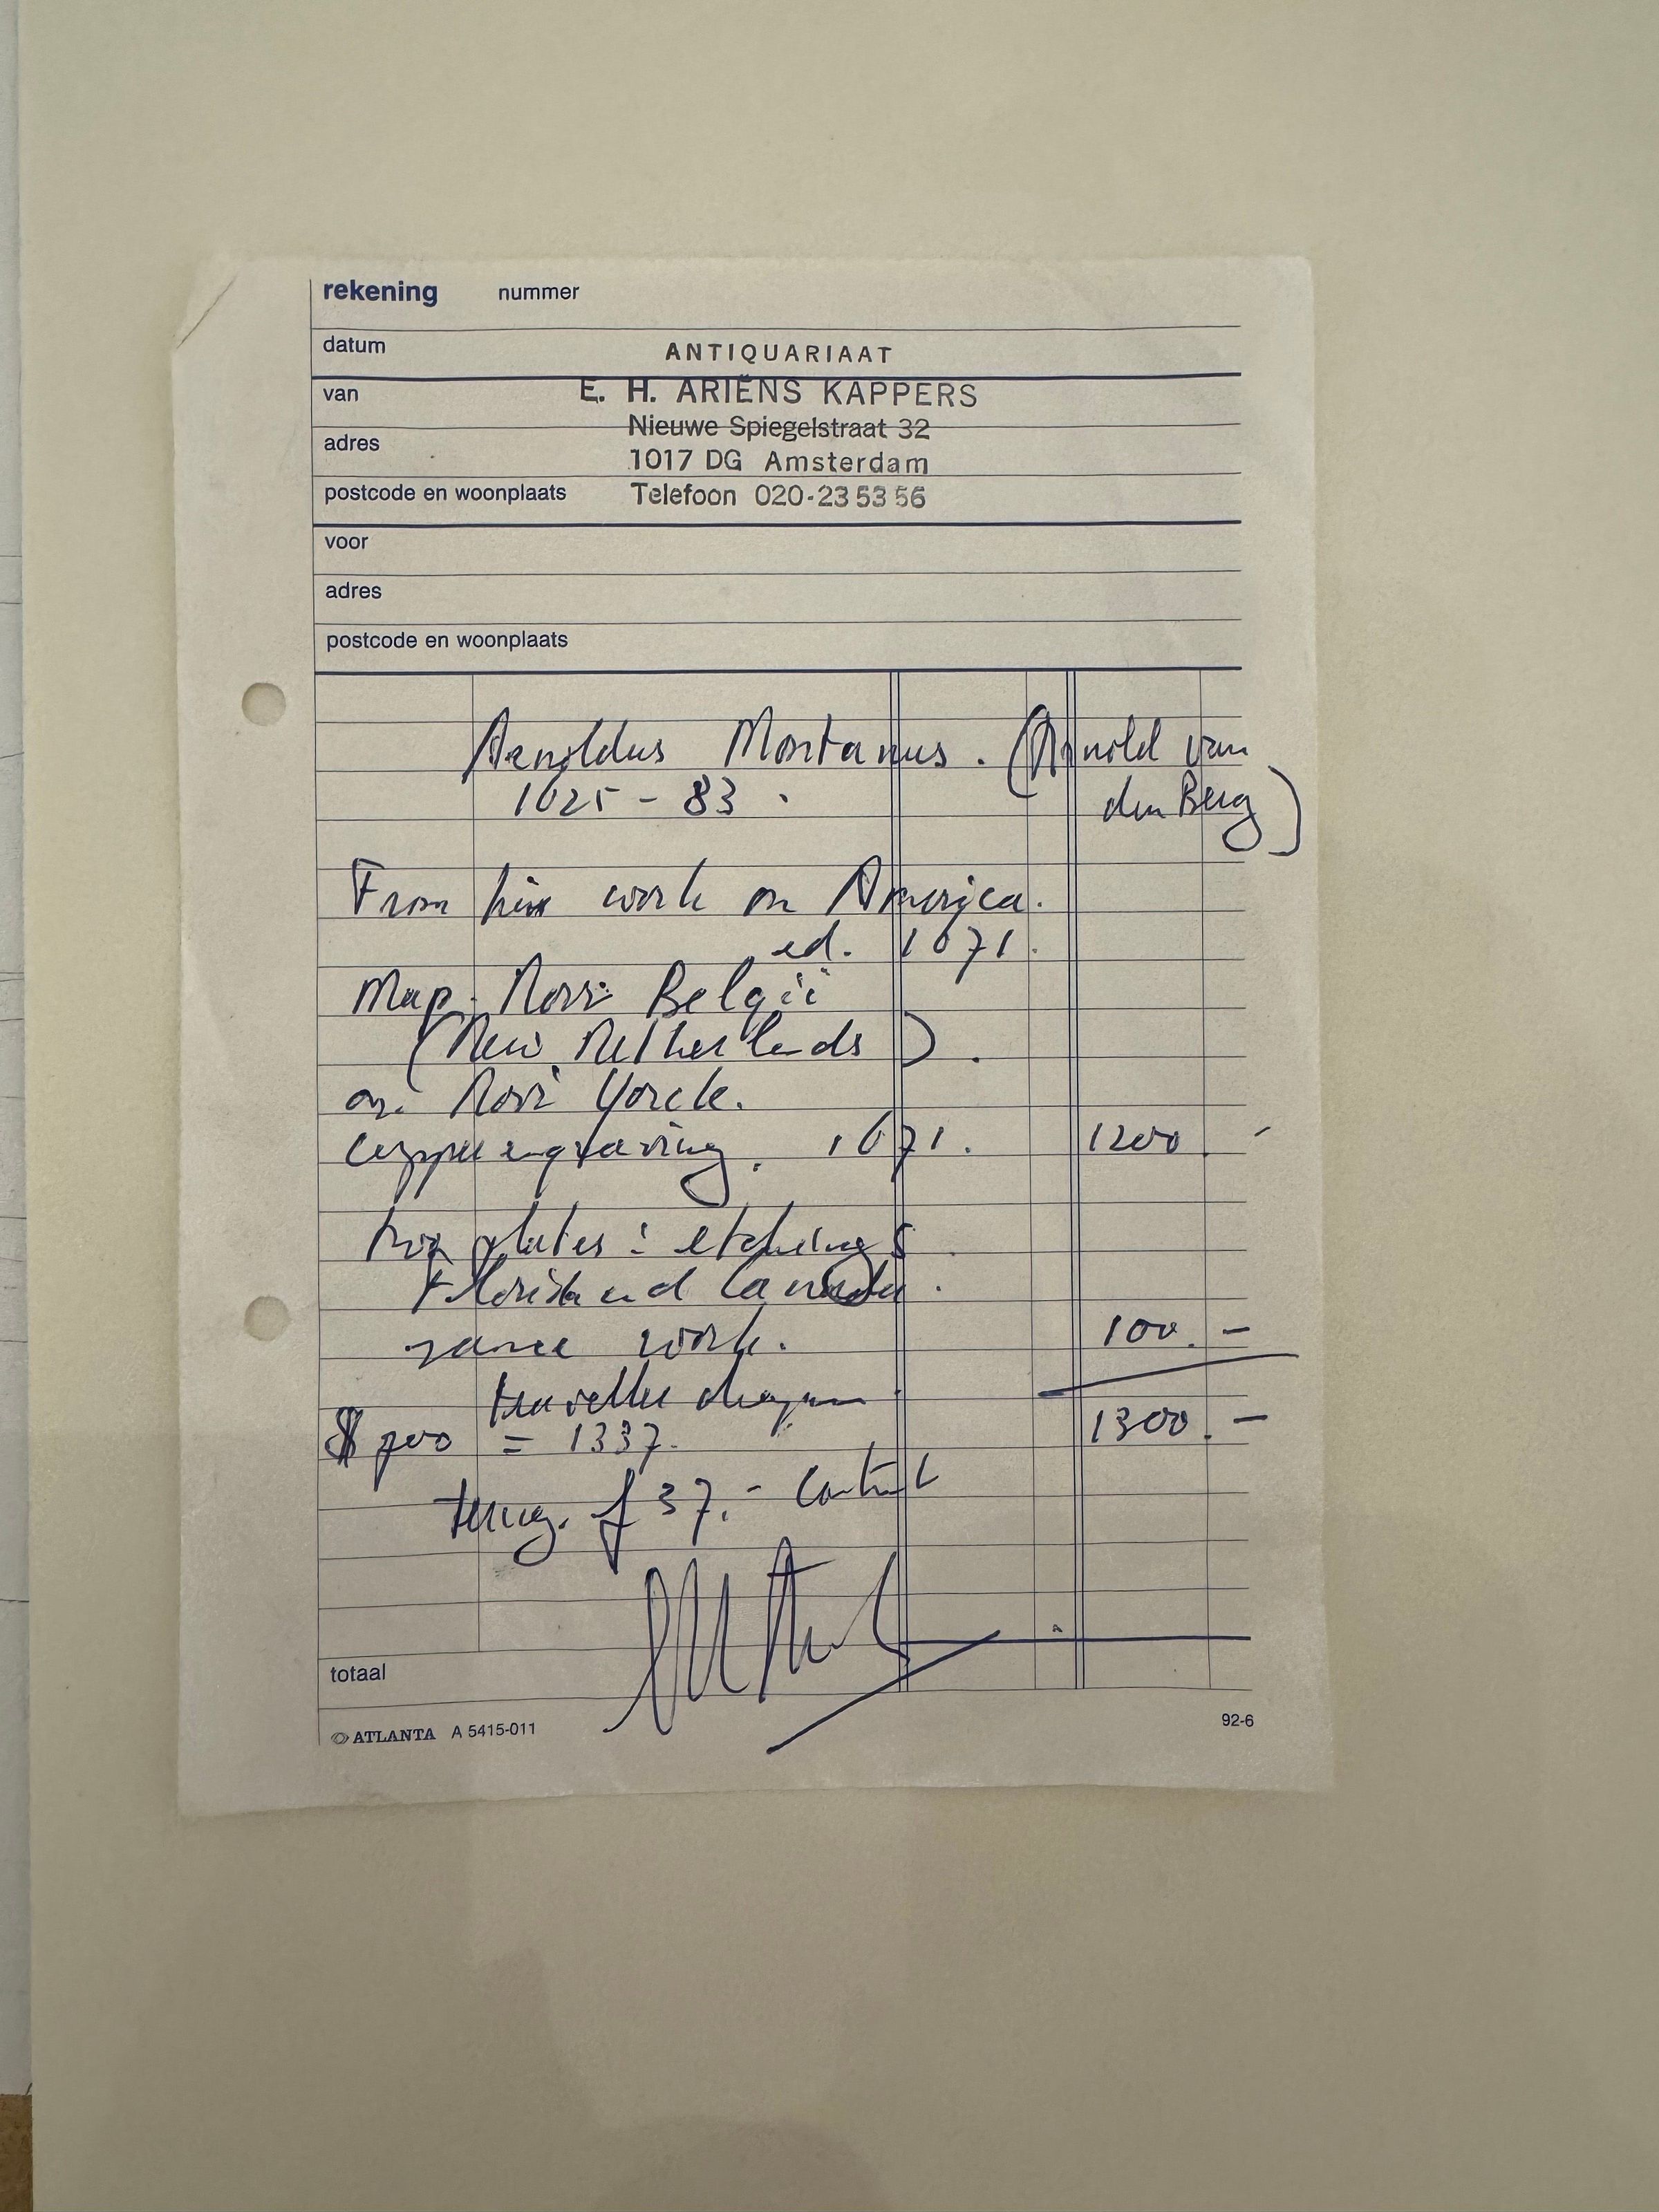 rekening nummer
datum
ANTIQUARIAAT
van
E. H. ARIËNS KAPPERS
Nieuwe Spiegelstraat 32
adres
1017 DG Amsterdam
postcode en woonplaats
Telefoon 020-23 53 56
voor
adres
postcode en woonplaats
Arnoldus Montanus. (Arnold van
1625 - 83. den Berg)
From his work on America.
ed. 1671.
Map. Novi Belgii
(New Netherlands).
or. Novi Yorck.
copper engraving. 1671. 1200. -
two plates: etchings
Florida and Canada.
same work. 100. -
traveller cheques 1300. -
$ 700 = 1337.
terug. f 37.- contant
totaal
ATLANTA A 5415-011 92-6